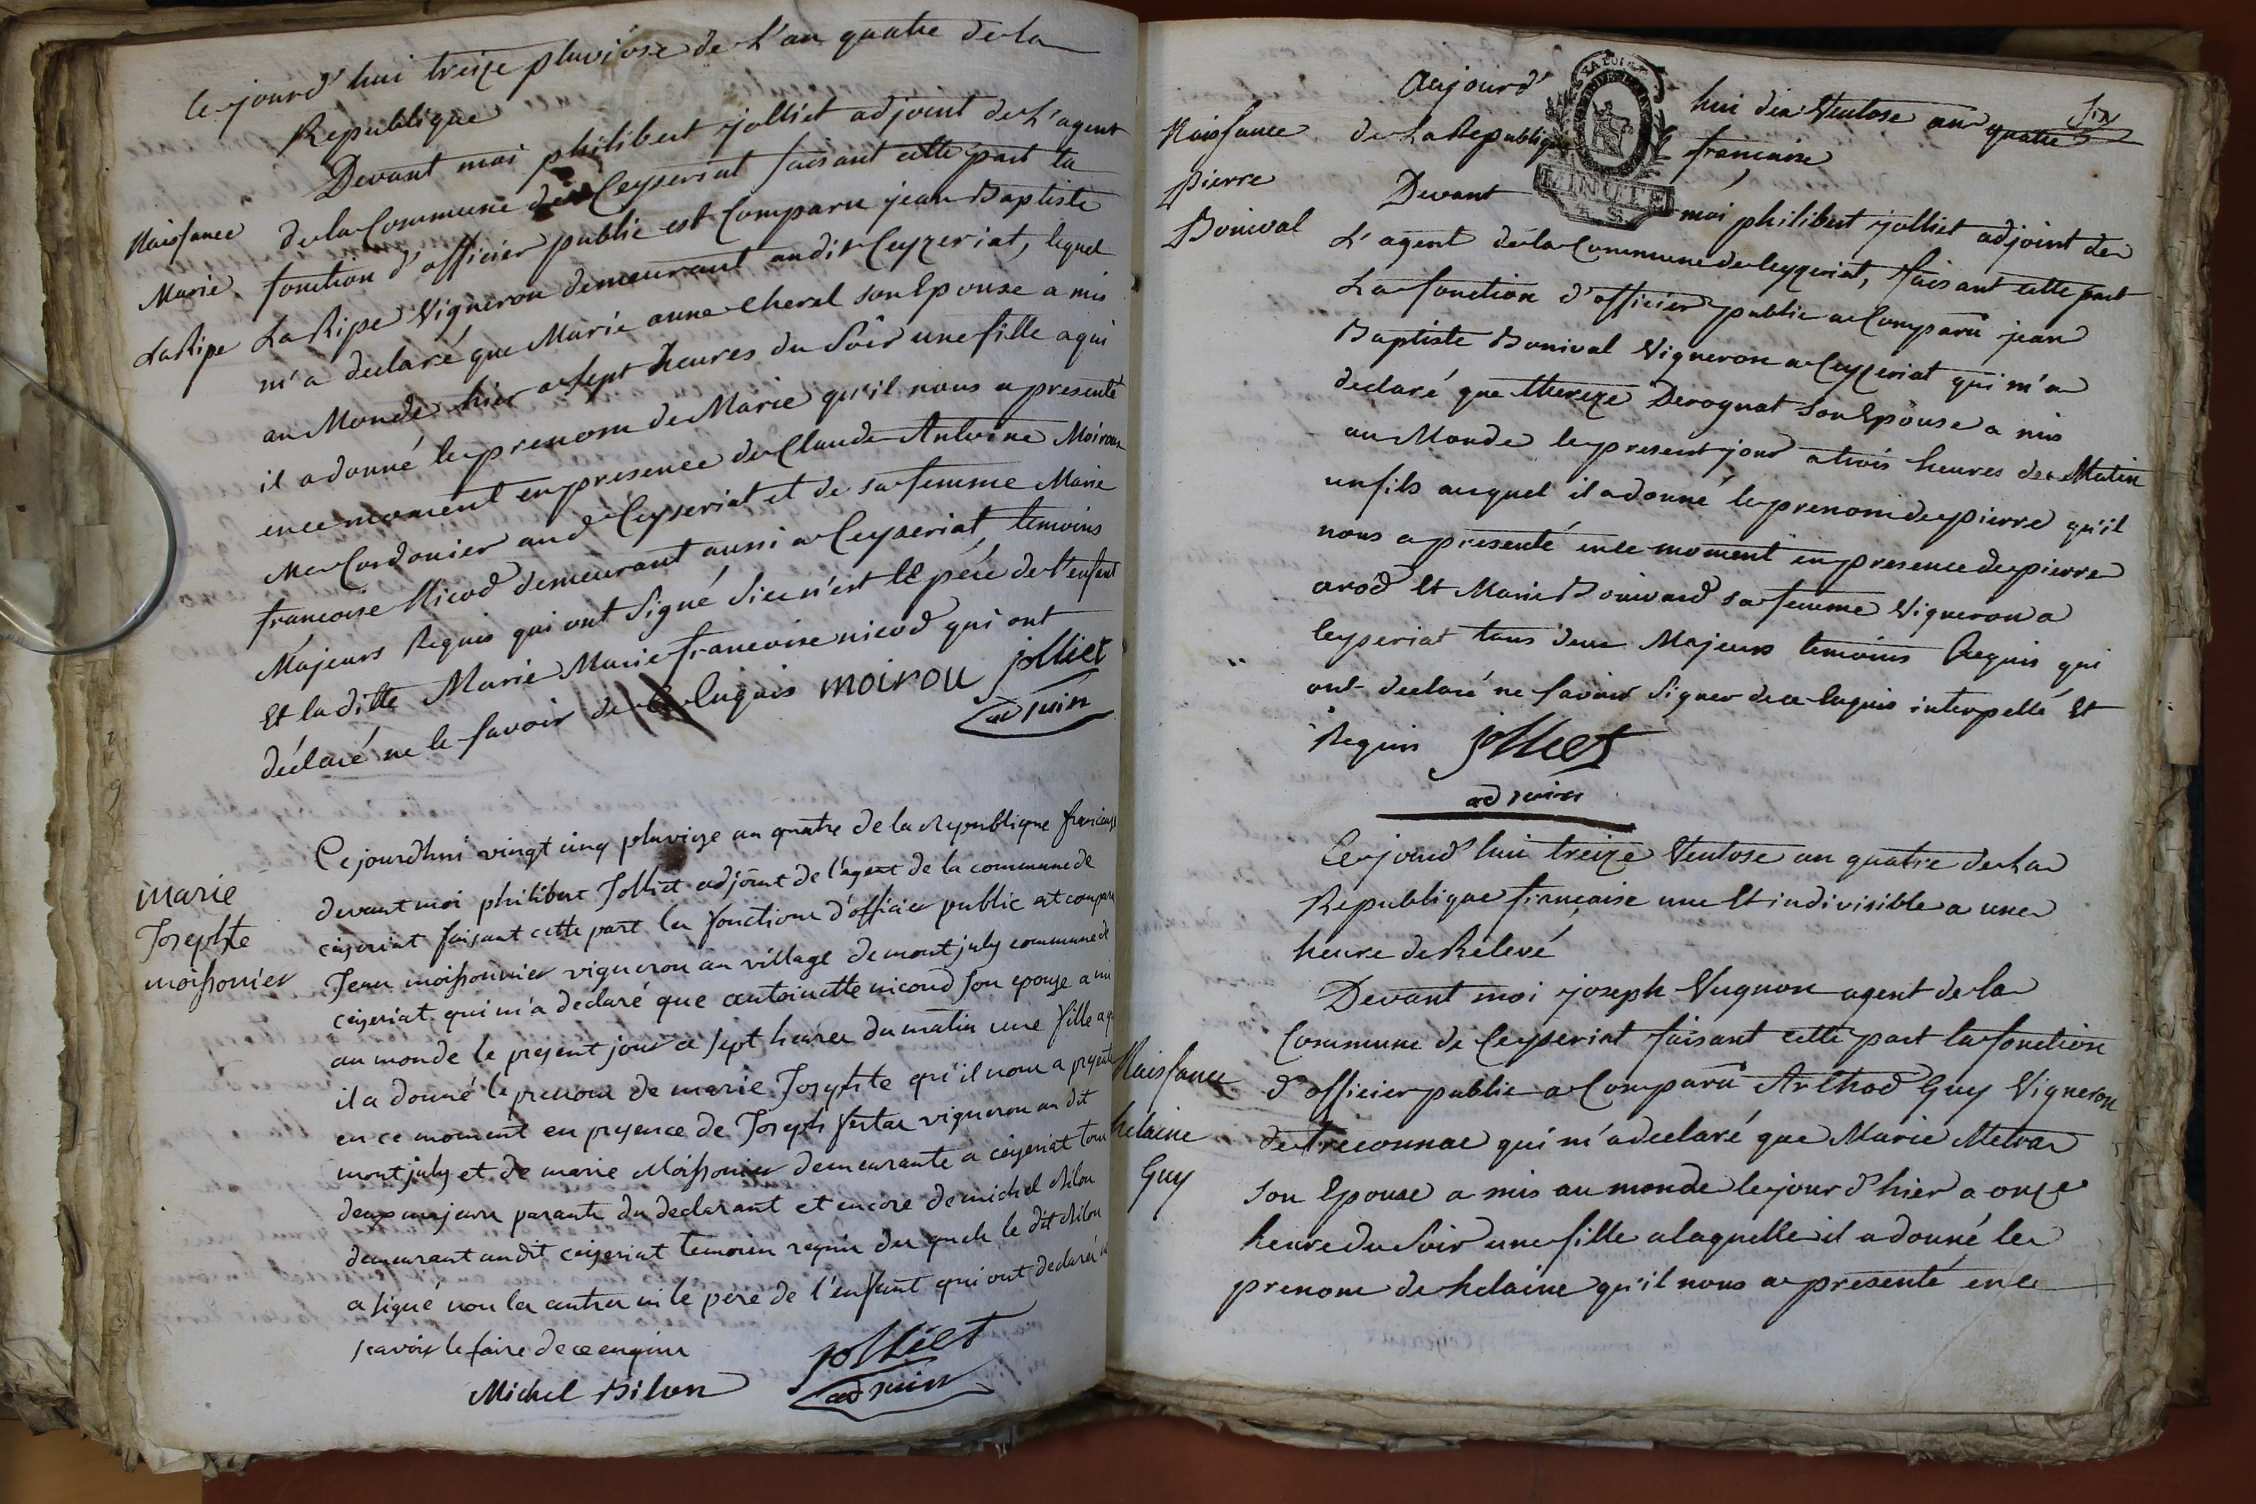 Ce jourd'hui treize pluviose de L'an quatre de la
Republique
Devant moi philibert jolliet adjoint de L'agent
de la Commune de Ceyseriat faisant cette part la
fonction d'officier public est Comparu jean Baptiste
La Ripe Vigneron demeurant audit Ceyzeriat, lequel
m'a declaré que Marie anne cheral son Epouse a mis
au Monde hier a sept heures du Soir une fille a qui
il a donné le prenom de Marie qu'il nous a presenté
en ce moment en presence de Claude Antoine Moirou
Me Cordonier aud Ceyseriat et de sa femme Marie
francoise Nicod demeurant aussi a Ceyseriat, temoins
Majeurs Requis qui ont Signé Si ce n'est le pere de l'enfant
Et la ditte Marie Marie francoise nicod qui ont
déclaré ne le savoir de ce Enquis moirou jolliet
adjoin
Naissance
Marie
La Ripe
Ce jourdhui vingt cinq pluvioze an quatre de la Republique francaise
devant moi philibert Jolliet adjoint de l'agent de la commune de
ceyseriat faisant cette part la fonction d'officier public est comparu
Jean moissonnier vigneron au village de mont july commune de
ceyseriat qui m'a declaré que antoinette nicoud son epouse a mi
au monde le present jour a sept heures du matin une fille a qui
il a donné le prenom de marie Josephte qu'il nous a presenté
en ce moment en presence de Joseph vigneron au dit
mont july et de marie Moissonier demeurante a ceyseriat tous
deux majeurs parants du declarant et encore de michel Bilon
demeurant audit ceyseriat temoins requis des quels le dit Bilon
a signé non les autres ni le pere de l'enfant qui ont declaré ne
scavoir le faire de ce enquis
Michel Bilon jolliet
adjoin
marie
Josephte
moissonier
Aujourd'hui dix Ventose an quatre Six
de La Republique française
Devant moi philibert jolliet adjoint de
L'agent de la Commune de Ceyzeriat, faisant cette part
La fonction d'officier public a Comparu jean
Baptiste Bonival Vigneron a Ceyzeriat qui m'a
declaré que thereze Derognat Son Epouse a mis
au Monde le present jour a trois heures de Matin
un fils auquel il a donné le prenom de pierre qu'il
nous a presenté en ce moment en presence de pierre
arod Et Marie Bonivard sa femme Vigneron a
Ceyseriat tous deux Majeurs temoins Requis qui
ont declaré ne savoir Signer de ce Enquis interpellé Et
Requis jolliet
adjoin
Naissance
Pierre
Bonival
Ce jourd'hui treize Ventose an quatre de La
Republique française une Et indivisible a une
heure de Relevé
Devant moi joseph Vugnon agent de la
Commune de Ceyseriat faisant cette part la fonction
d'officier public a Comparu Arthod Guy Vigneron
de treconnac qui m'a declaré que Marie Metra
son Epouse a mis au monde le jour d'hier a onze
heure du Soir une fille a laquelle il a donné le
prenom de helaine qu'il nous a presenté en ce
Naissance
helaine
Guy